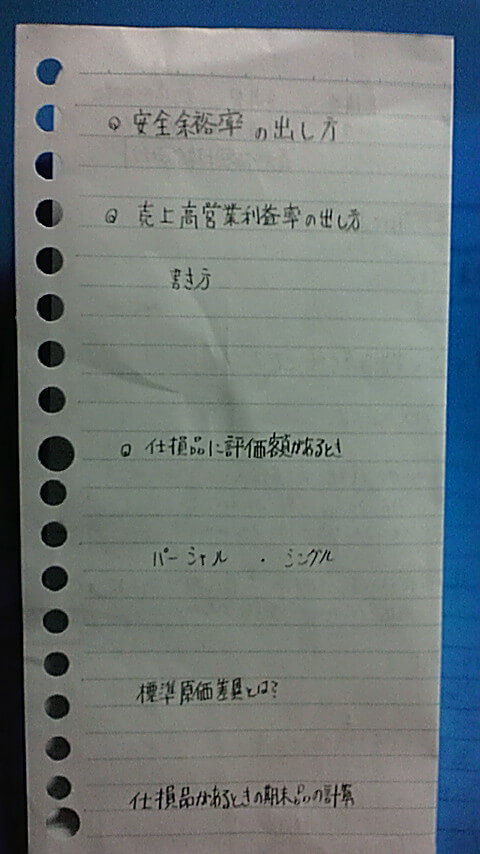 Q 安全余裕率の出し方
Q 売上高営業利益率の出し方
書き方
Q 仕損品に評価額があるとき
パーシャル ・ シングル
標準原価差異とは?
仕損品があるときの期末品の計算